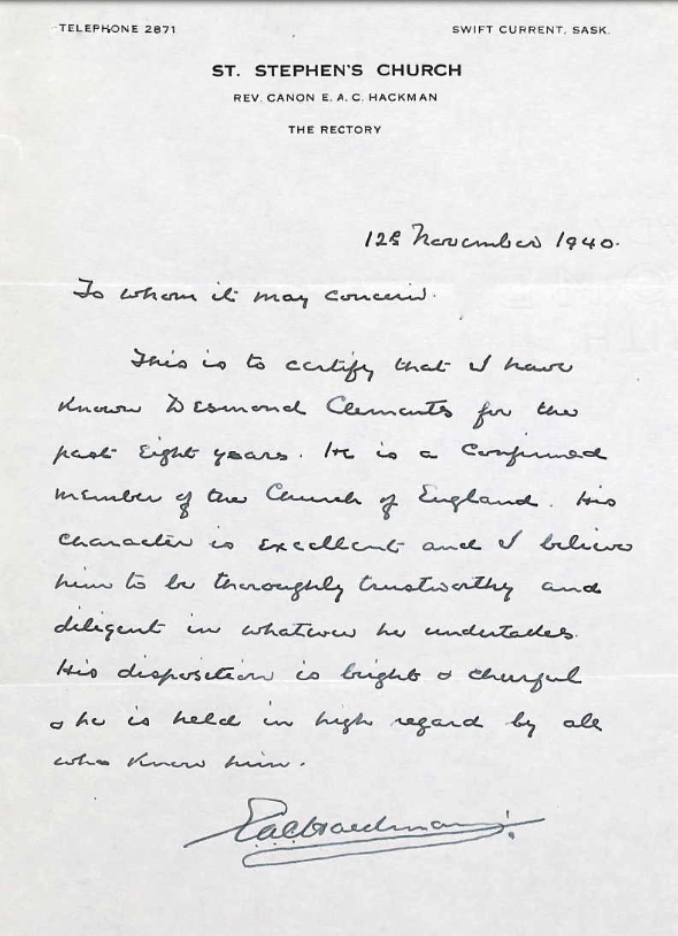 TELEPHONE 2871
SWIFT CURRENT, SASK.
ST. STEPHEN'S CHURCH
REV. CANON E. A. C. HACKMAN
THE RECTORY
12th November 1940.
To whom it may concern.
This is to certify that I have
known Desmond Clements for the
past Eight years. He is a Confirmed
member of the Church of England. His
character is excellent and I believe
him to be thoroughly trustworthy and
diligent in whatever he undertakes.
His disposition is bright & cheerful
& he is held in high regard by all
who know him.
EACHackman.